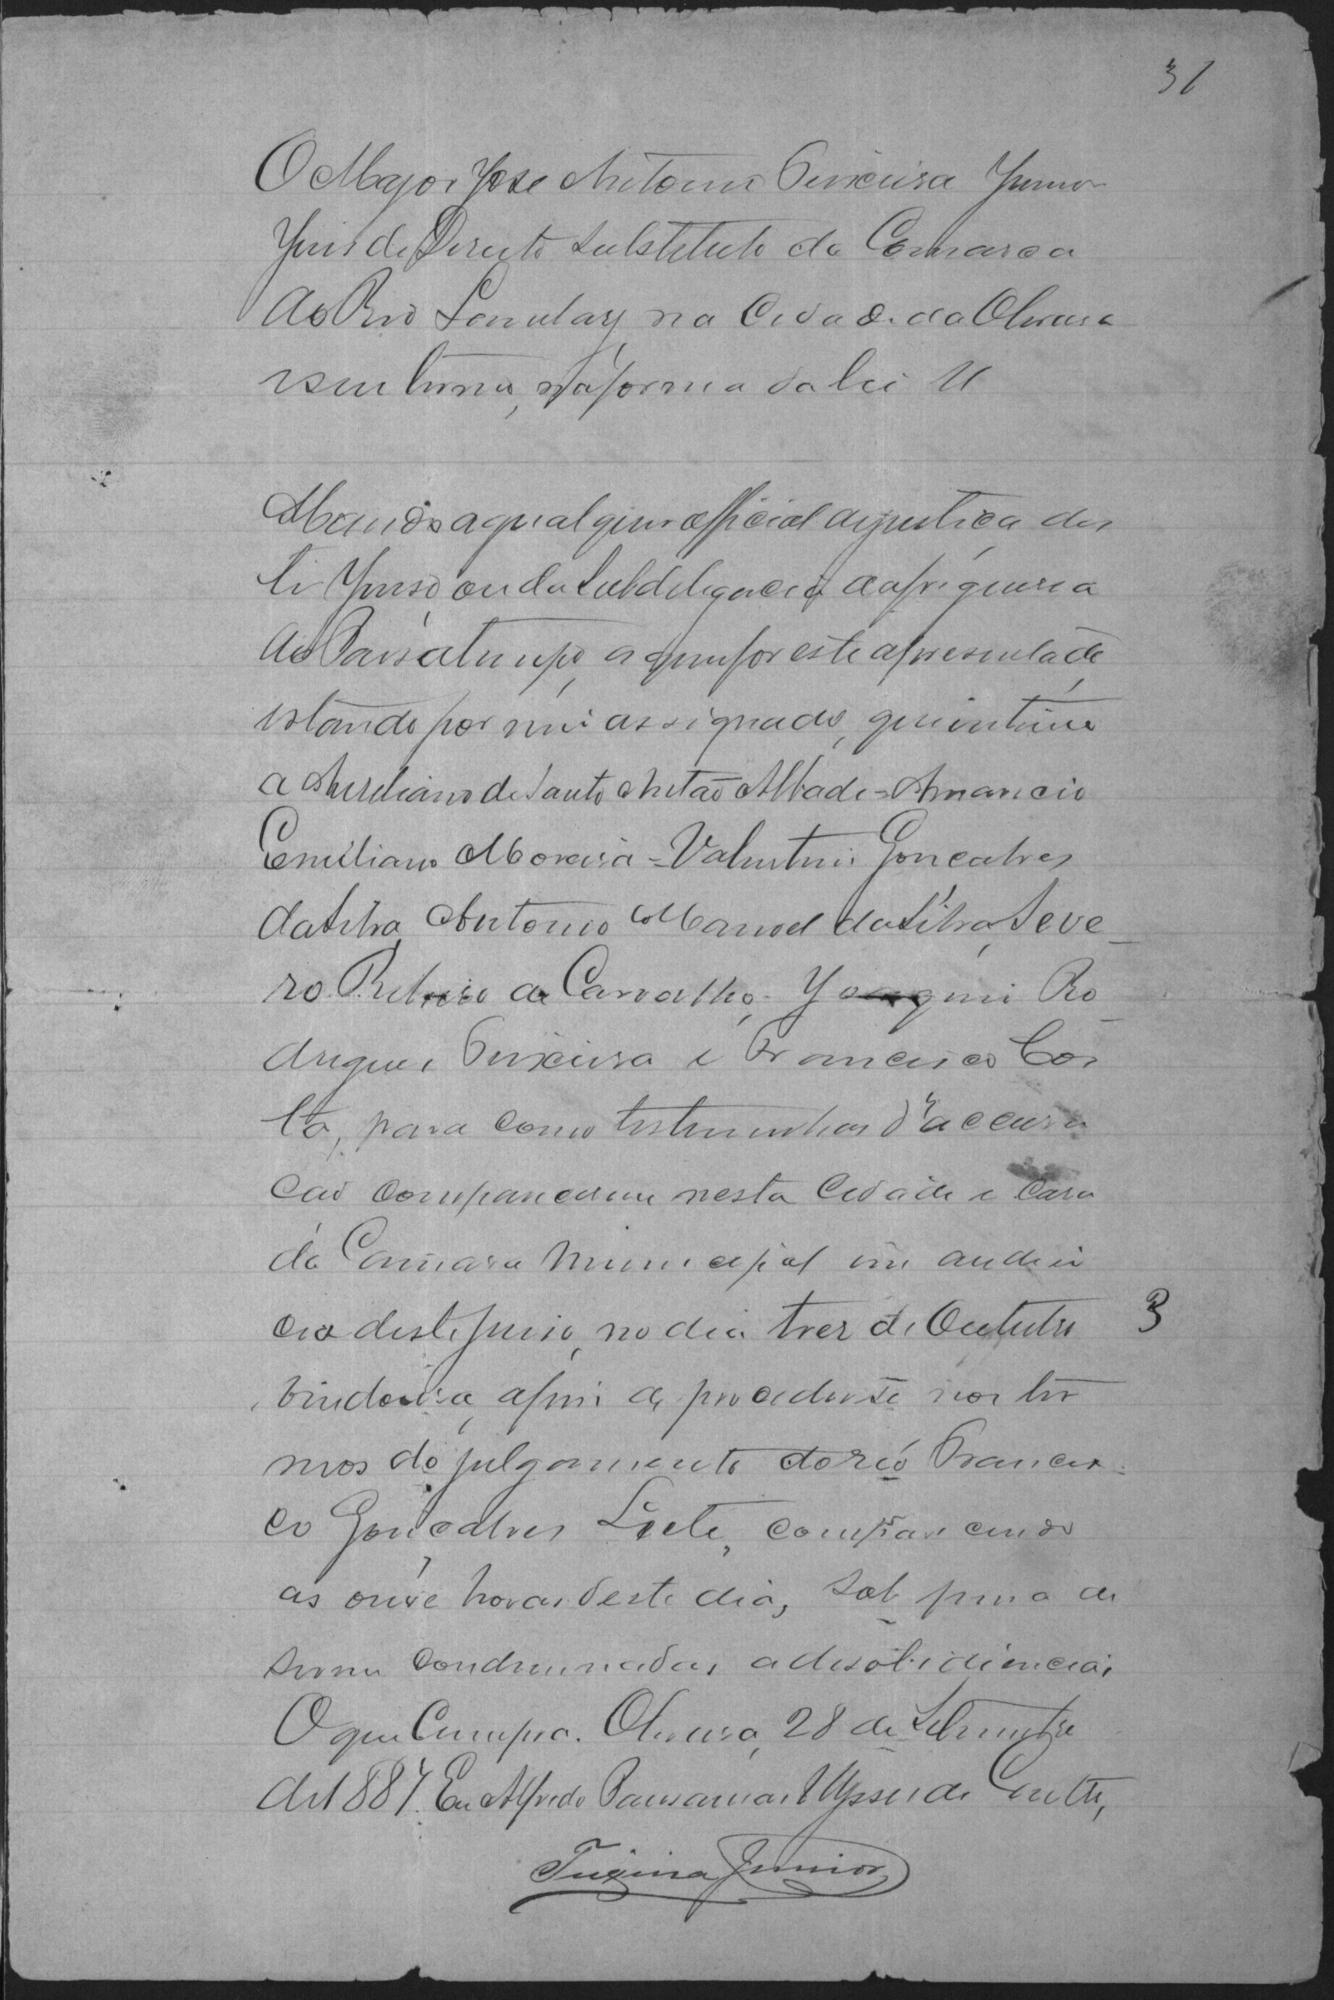 31
O Major José Antonio Teixeira Junior
Juis de Direito Substituto da Comarca
do Rio Lambary na Cidade da Oliveira
e seu termo, na forma da lei
Mando a qualquer official de justiça des
te Juiso, ou da Subdelegacia da freguesia
do Passatempo, a quem for este apresentado
estando por mim assignado, que intime
a Aureliano de Santo Antão Abbade = Amancio
Emiliano Moreira = Valentim Gonçalves
da Silva, Antonio Manoel da Silva, Seve
ro Ribeiro de Carvalho, Joaquim Ro
drigues Teixeira e Francisco Cos
ta, para como testemunhas d'accusa
ção comparecerem nesta Cidade e casa
da Camara Municipal em audien
cia deste Juiso, no dia tres de Outubro 3
vindouro, afim de proceder-se nos ter
mos do julgamento do réo Francis
co Gonçalves Leite, comparecendo
as onze horas deste dia, sob pena de
serem condemnadas a desobidiencia.
O que Cumpra. Oliveira, 28 de Setembro
de 1887. Eu Alfredo Pausanias Ulysses de
Teixeira Junior